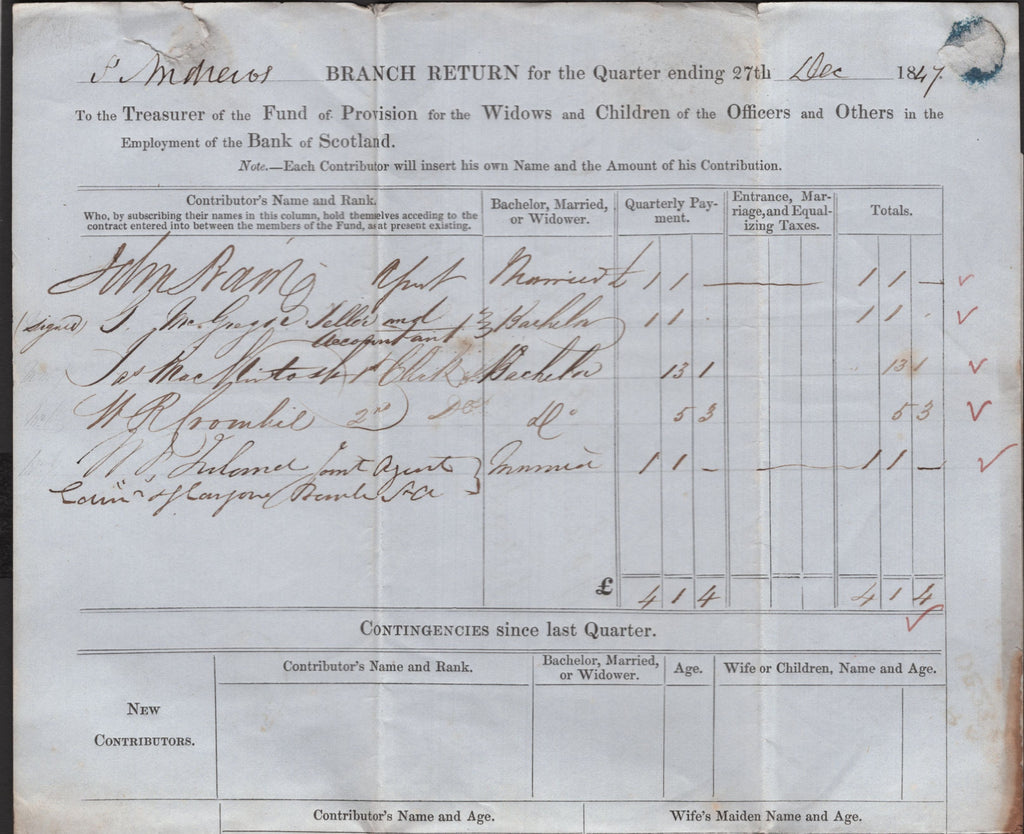 St Andrews BRANCH RETURN for the Quarter ending 27th Dec 1847.
To the Treasurer of the Fund of Provision for the Widows and Children of the Officers and Others in the
Employment of the Bank of Scotland.
Note.—Each Contributor will insert his own Name and the Amount of his Contribution.
Contributor's Name and Rank. Bachelor, Married, or Widower. Quarterly Payment. Entrance, Marriage, and Equalizing Taxes. Totals.
Who, by subscribing their names in this column, hold themselves acceding to the
contract entered into between the members of the Fund, as at present existing.
John Bain Agent Married £ 1 1 — 1 1 —
(signed) McGregor Teller and Bachelor 1 1 . 1 1 .
Accountant
Jas MacKintosh 1st Clerk Bachelor 13 1 13 1
W R Crombie 2nd Do Do 5 3 5 3
Joint Agent Married 1 1 — 1 1 —
£ 4 1 4 4 1 4
CONTINGENCIES since last Quarter.
Contributor's Name and Rank. Bachelor, Married, or Widower. Age. Wife or Children, Name and Age.
NEW
CONTRIBUTORS.
Contributor's Name and Age. Wife's Maiden Name and Age.